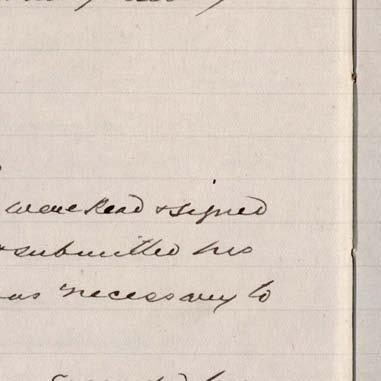 were Read & signed
& submitted his
as necessary to